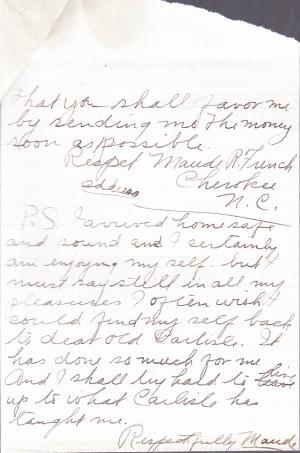 that you shall favor me
by sending me the money
soon as possible.
Respct Maude R. French
address Cherokee
N. C.
P. S. I arrived home safe
and sound and I certainly
am enjoying my self. but I
must say still in all my
pleasures I often wish I
could find my self back
to dear old Carlisle. It
has done so much for me
And I shall try hard to live
up to what Carlisle has
taught me.
Respectfully Maude